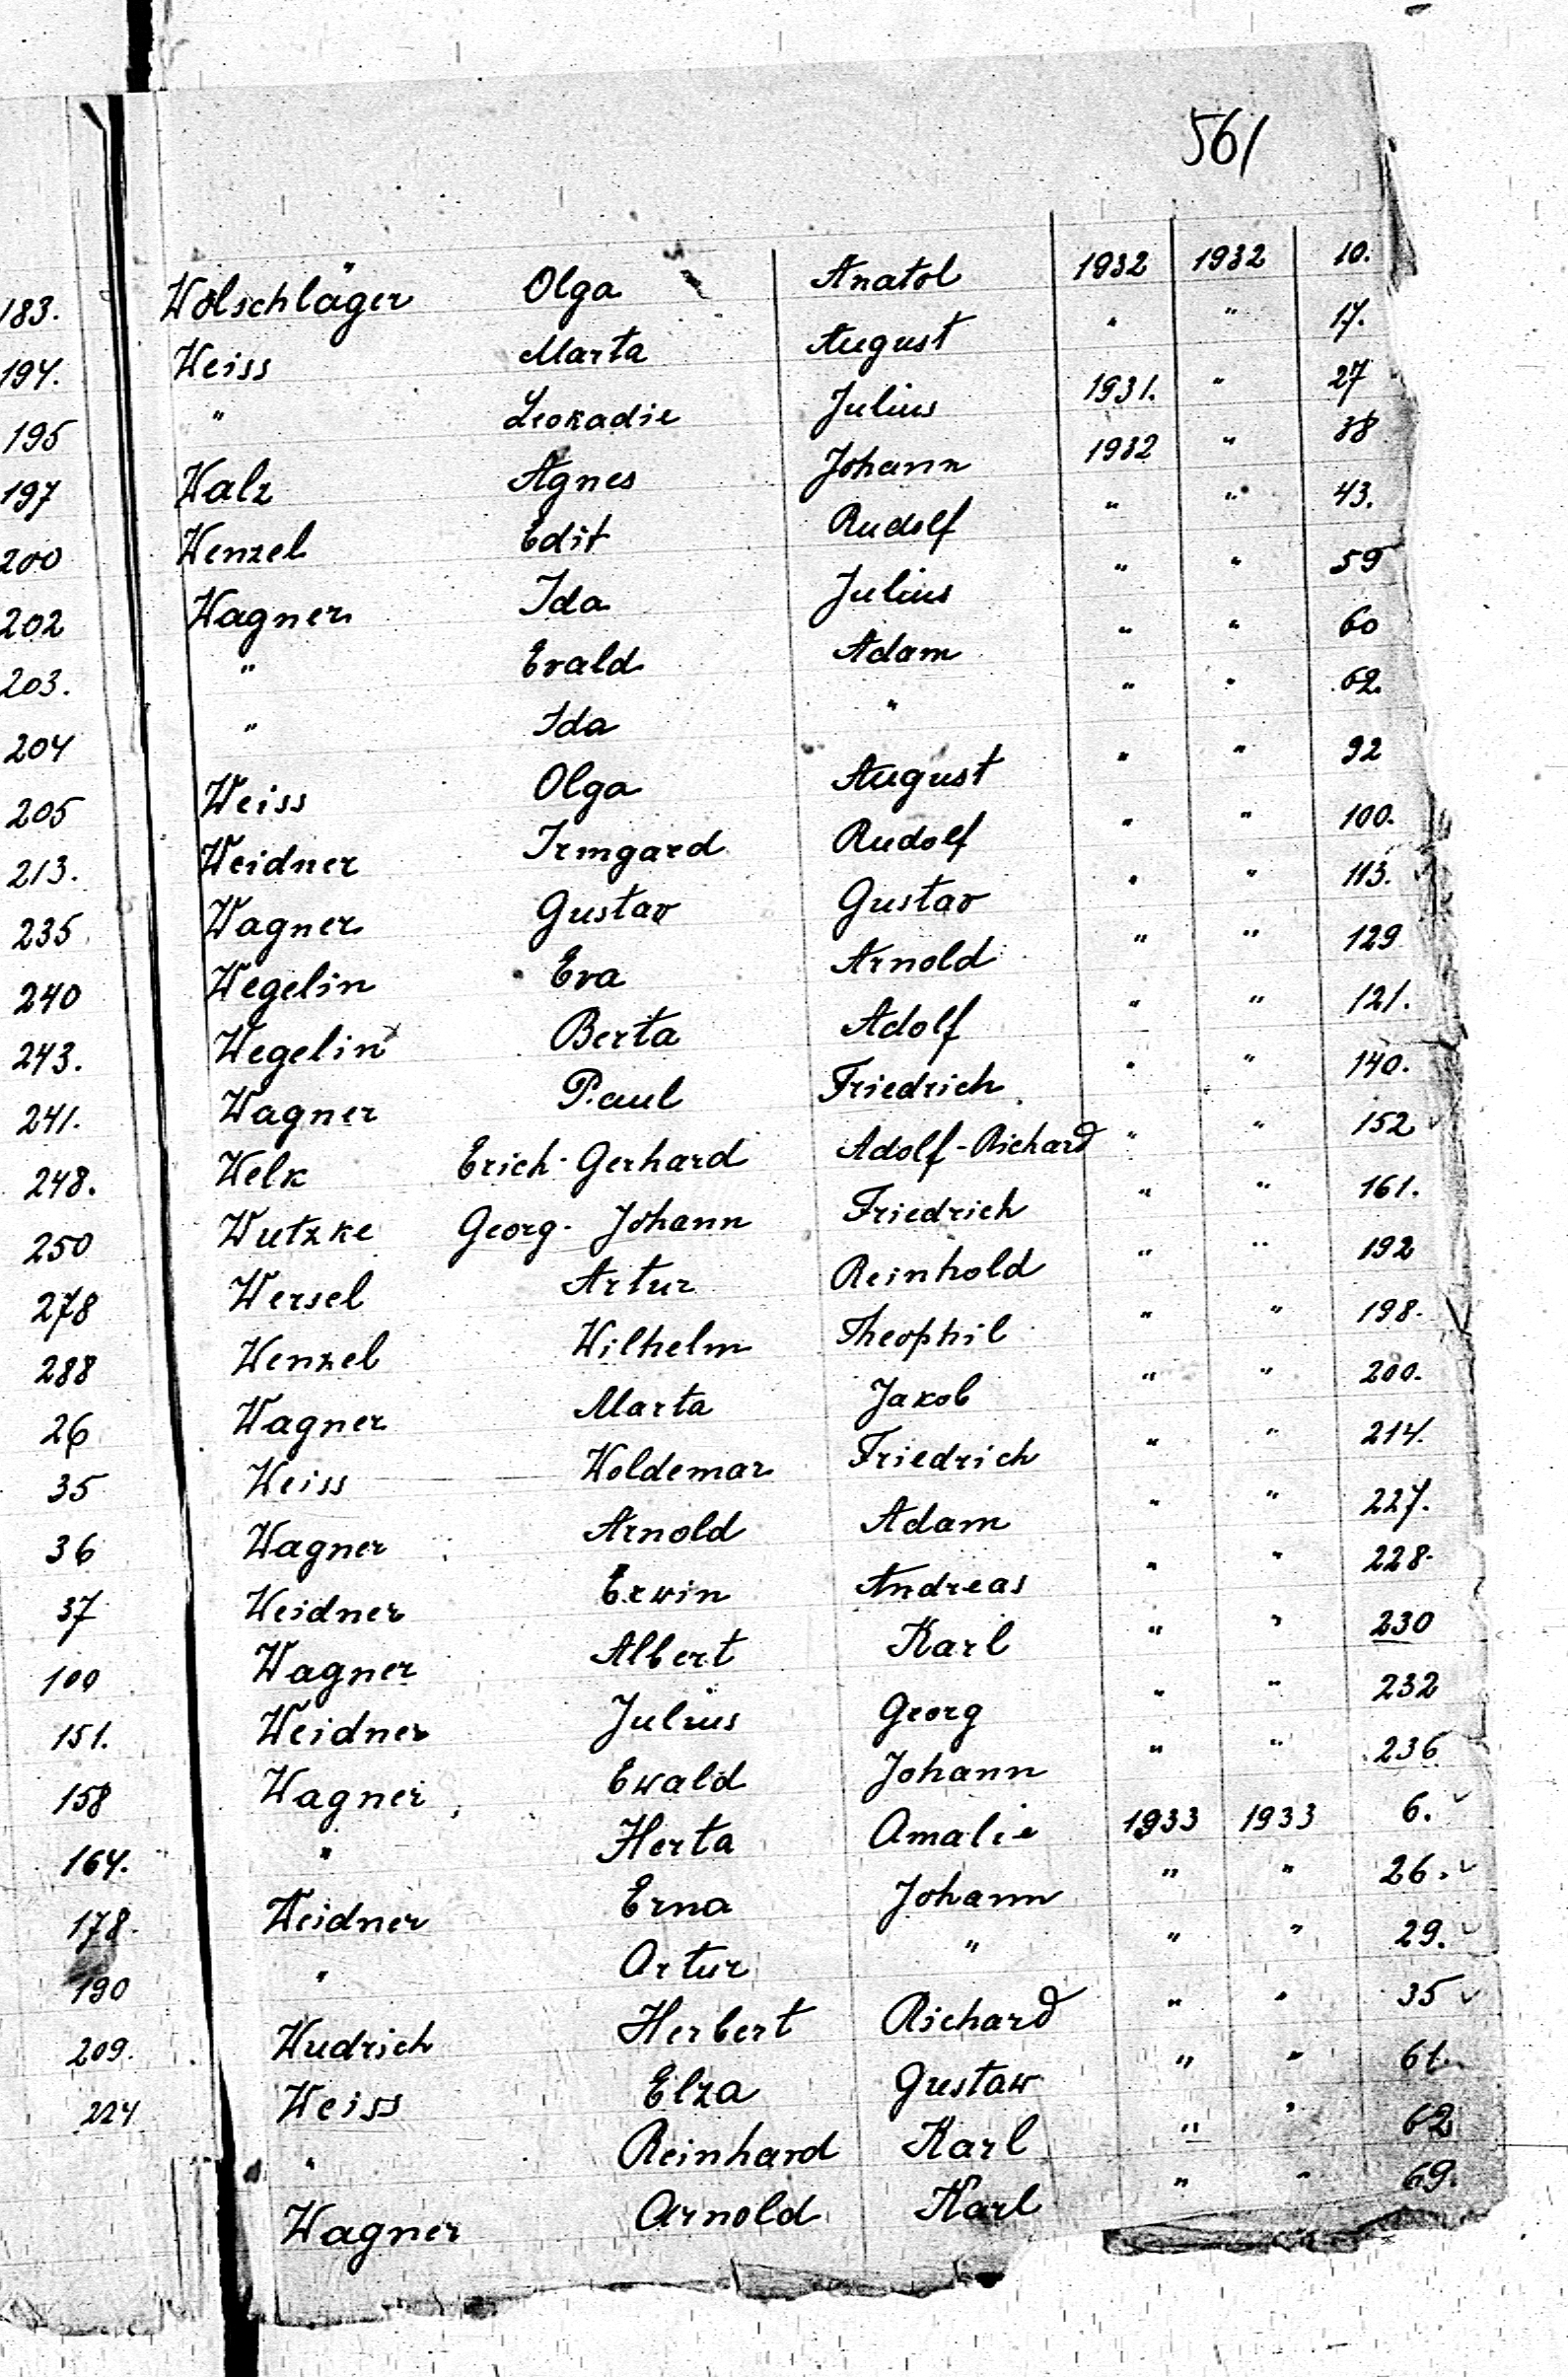 561
183. Wolschläger Olga Anatol 1932 1932 10.
194. Weiss Marta August " " 17.
195 " Leokadie Julius 1931. " 27
197 Walz Agnes Johann 1932 " 38
200 Wenzel Edit Rudolf " " 43.
202 Wagner Ida Julius " " 59
203. " Evald Adam " " 60
204 " Ida " " " 62.
205 Weiss Olga August " " 92
213. Weidner Irmgard Rudolf " " 100.
235 Wagner Gustav Gustav " " 113.
240 Wegelin Eva Arnold " " 129
243. Wegelin Berta Adolf " " 121.
241. Wagner Paul Friedrich " " 140.
248. Welk Erich-Gerhard Adolf-Richard " " 152
250 Wutzke Georg-Johann Friedrich " " 161.
278 Wersel Artur Reinhold " " 192
288 Wenzel Wilhelm Theophil " " 198.
26 Wagner Marta Jakob " " 200.
35 Weiss Woldemar Friedrich " " 214.
36 Wagner Arnold Adam " " 227.
37 Weidner Erwin Andreas " " 228.
100 Wagner Albert Karl " " 230
151. Weidner Julius Georg " " 232
158 Wagner Ewald Johann " " 236
164. " Herta Amalie 1933 1933 6.
178. Weidner Erna Johann " " 26.
190 " Artur " " " 29.
209. Wudrich Herbert Richard " " 35
224 Weiss Elza Gustaw " " 61.
" Reinhard Karl " " 62
Wagner Arnold Karl " " 69.